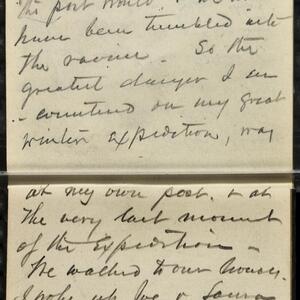 the post would
have been tumbled into
the ravine. So the
greatest danger I en
- countered on my great
winter expedition, was
at my own post, & at
the very last moment
of the Expedition -
We walked to our houses.
I woke up Joe &